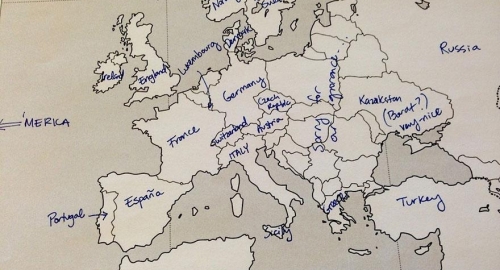 Sweden
Denmark
Luxembourg
Ireland
England
Germany
Russia
Czech
Republic
Sorry
for
ignorance.
Kazakstan
(Borat?)
very nice
'MERICA
France
Switzerland
Austria
ITALY
España
Portugal
Sicily
Greece
Turkey